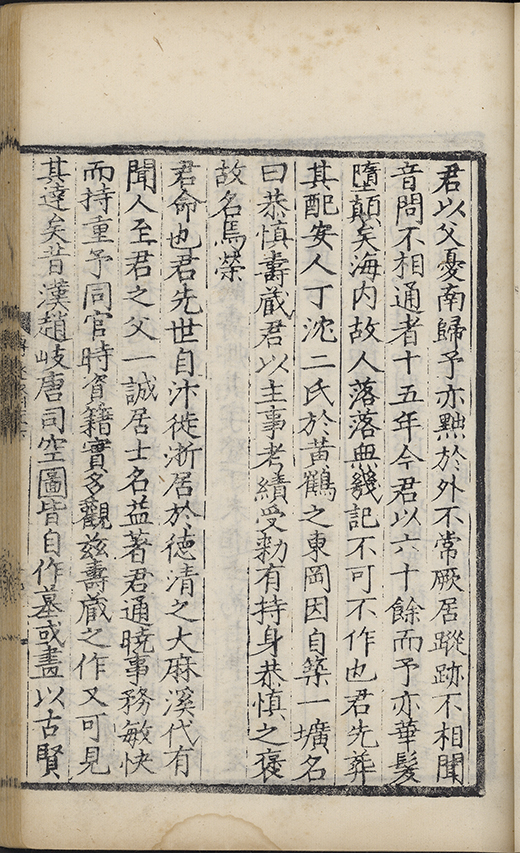 君以父憂南歸予亦黜於外不常厥居蹤跡不相聞
音問不相通者十五年今君以六十餘而予亦華髮
墮顛矣海內故人落落無幾記不可不作也君先葬
其配安人丁沈二氏於黃鶴之東岡因自築一壙名
曰恭慎壽藏君以主事考績受勑有持身恭慎之褒
故名焉榮
君命也君先世自汴徙浙居於德清之大麻溪代有
聞人至君之父一誠居士名益著君通曉事務敏快
而持重予同官時資籍實多觀茲壽藏之作又可見
其達矣昔漢趙岐唐司空圖皆自作墓或畫以古賢